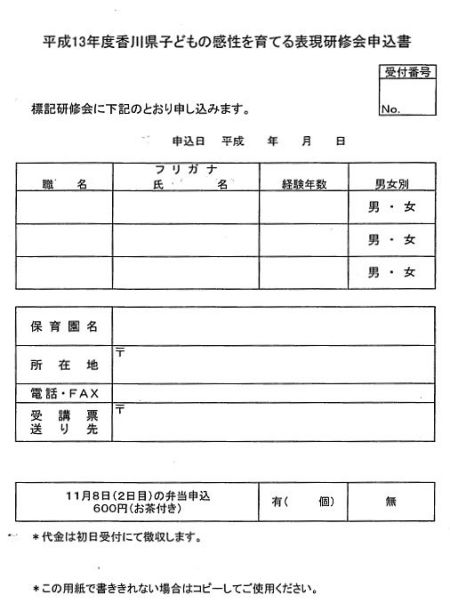 平成13年度香川県子どもの感性を育てる表現研修会申込書
受付番号
No.
標記研修会に下記のとおり申し込みます。
申込日 平成 年 月 日
職 名 フリガナ 氏 名 経験年数 男女別
男・女
男・女
男・女
保育園名
所在地 〒
電話・FAX
受講票 〒
送り先
11月8日(2日目)の弁当申込 有( 個) 無
600円(お茶付き)
*代金は初日受付にて徴収します。
*この用紙で書ききれない場合はコピーしてご使用ください。